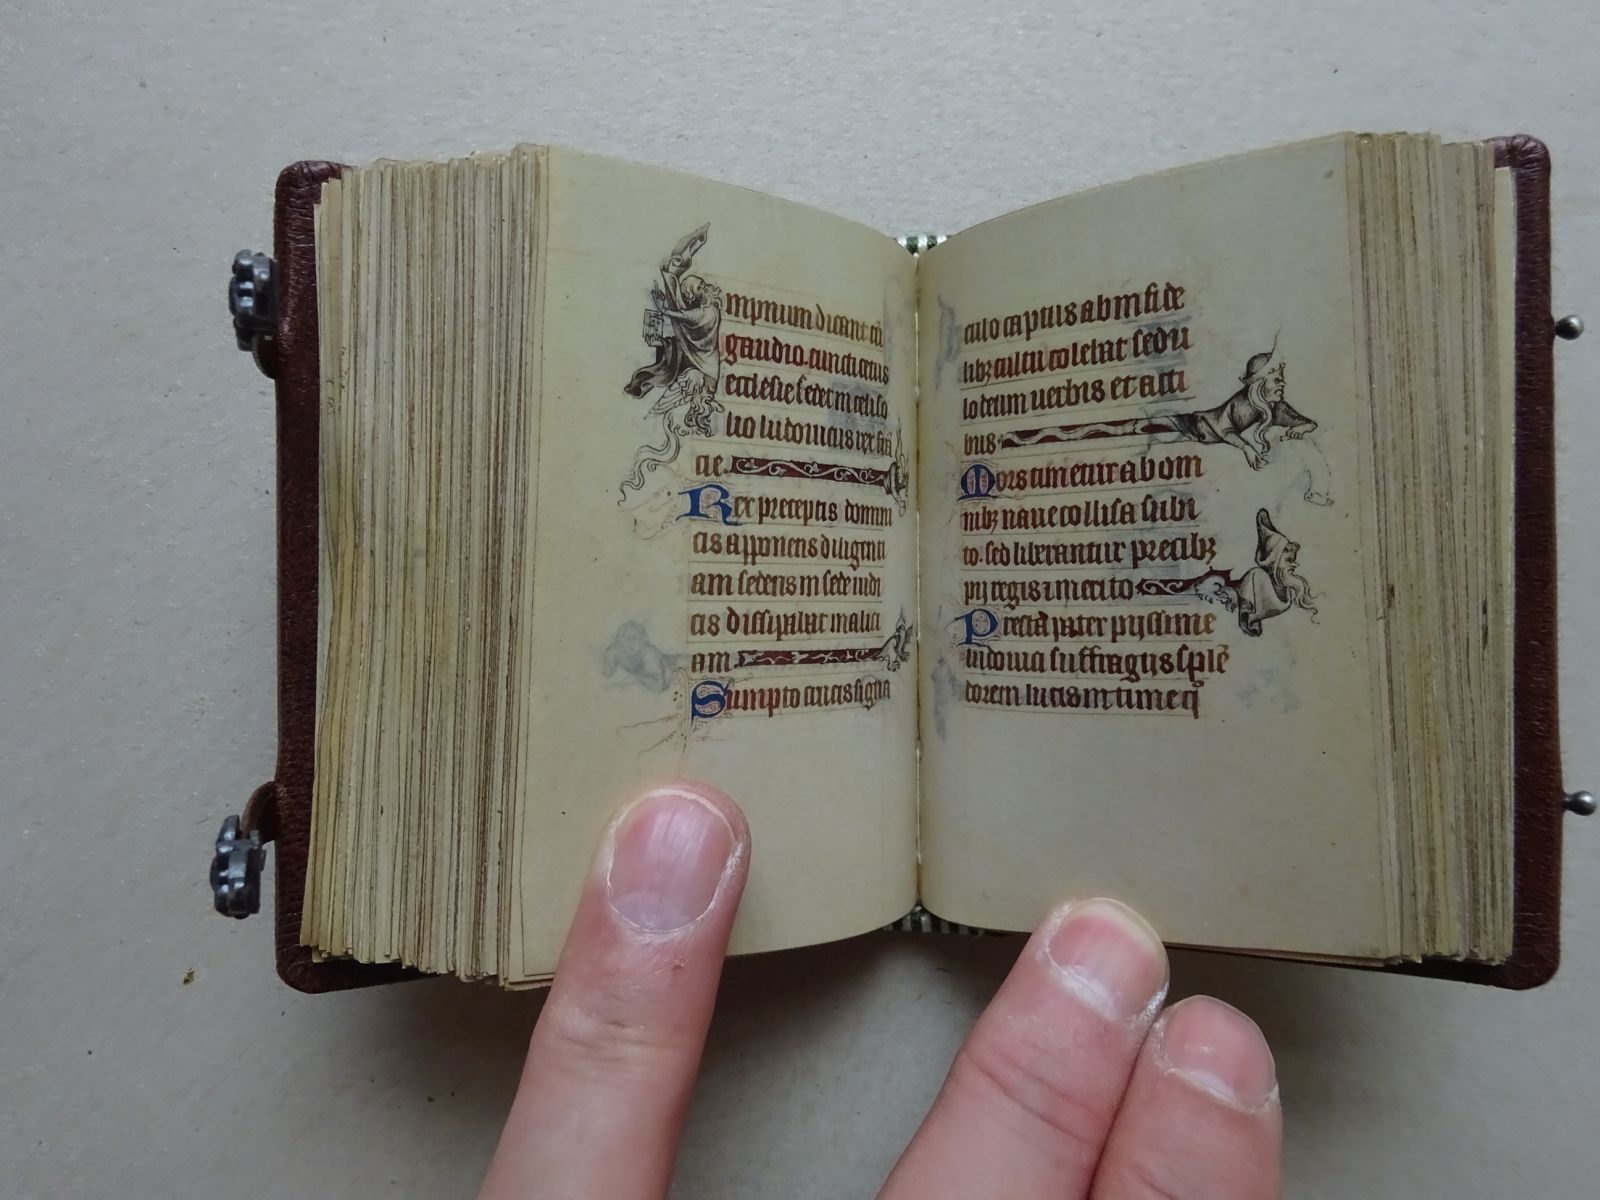 mpnium dicant cū
gaudio. cuncti cetus
ecclesie sedet in celi so
lio ludouicus rex frā
cie.
Rex preceptis domini
cis apponens diligenti
am sedens in sede iudi
cis dissipabat malici
am
Sumpto crucis signa
culo captus ab infide
libꝫ cultu colebat sedu
lo deum uerbis et acti
bus
Mors timetur ab om
nibꝫ naue collisa subi
to. sed liberantur precibꝫ
pij regis merito
Precta pater pijssime
ludouici suffragijs splē
dorem lucis intime qͦ